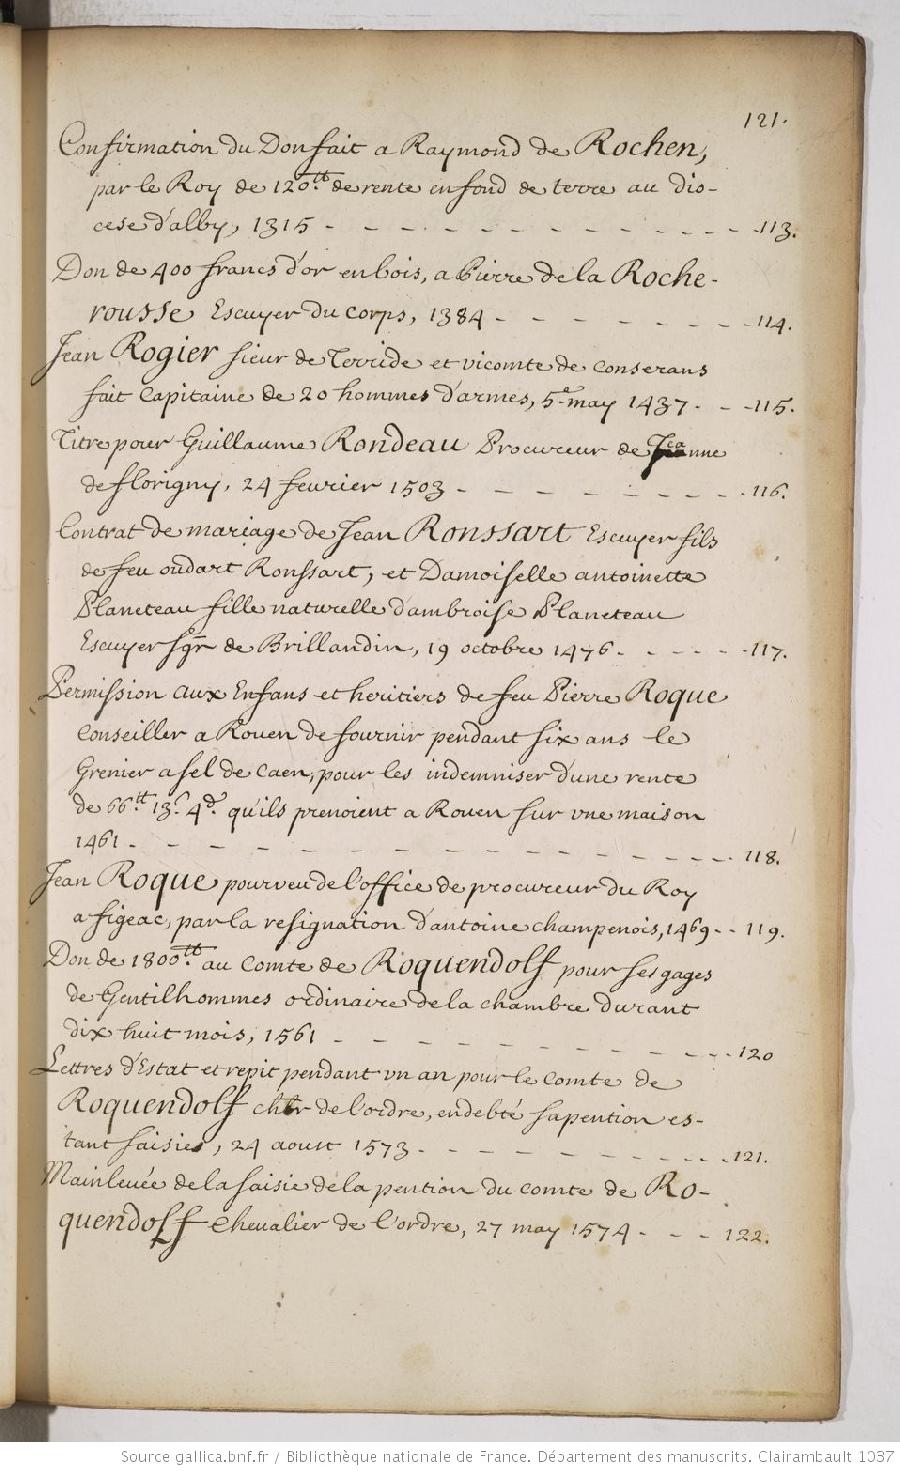 121.
Confirmation du Don fait a Raymond de Rochen,
par le Roy de 120.tt de rente en fond de terre au dio-
cese d'alby, 1315 - - - - - - - - - - - - - 113.
Don de 400 francs d'or en bois, a Pierre de la Roche-
rousse Escuyer du corps, 1384 - - - - - - - 114.
Jean Rogier sieur de Terride et vicomte de conserans
fait Capitaine de 20 hommes d'armes, 5.e may 1437 - - - 115.
Titre pour Guillaume Rondeau Procureur de Jeanne
de florigny, 24 fevrier 1503 - - - - - - - - 116.
Contrat de mariage de Jean Ronssart Escuyer fils
de feu oudart Ronssart, et Damoiselle antoinette
Planeteau fille naturelle d'ambroise Planeteau
Escuyer sgr de Brillandin, 19 octobre 1476 - - - - - 117.
Permission aux Enfans et heritiers de feu Pierre Roque
Conseiller a Rouen de fournir pendant six ans le
Grenier a sel de Caen, pour les indemniser d'une rente
de 66.tt 13.s 4.d qu'ils prenoient a Rouen sur vne maison
1461 - - - - - - - - - - - - - - - - 118.
Jean Roque pourveu de l'office de procureur du Roy
a figeac, par la resignation d'antoine champenois, 1469 - - 119.
Don de 1800.tt au Comte de Roquendolf pour ses gages
de Gentilhommes ordinaire de la chambre durant
dix huit mois, 1561 - - - - - - - - - - - - 120
Lettres d'Estat et repit pendant vn an pour le Comte de
Roquendolf chlr de l'ordre, endebté sa pention es-
tant saisies, 24 aoust 1573 - - - - - - - - - - - 121.
Mainlevée de la saisie de la pention du comte de Ro-
quendolf Chevalier de l'ordre, 27 may 1574 - - - - 122.
Source gallica.bnf.fr / Bibliothèque nationale de France. Département des manuscrits. Clairambault 1037